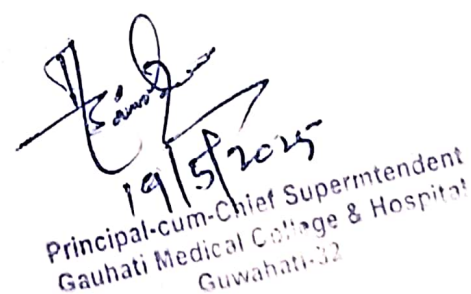 19/5/2025
Principal-cum-Chief Supermtendent
Gauhati Medical College & Hospital
Guwahati-32